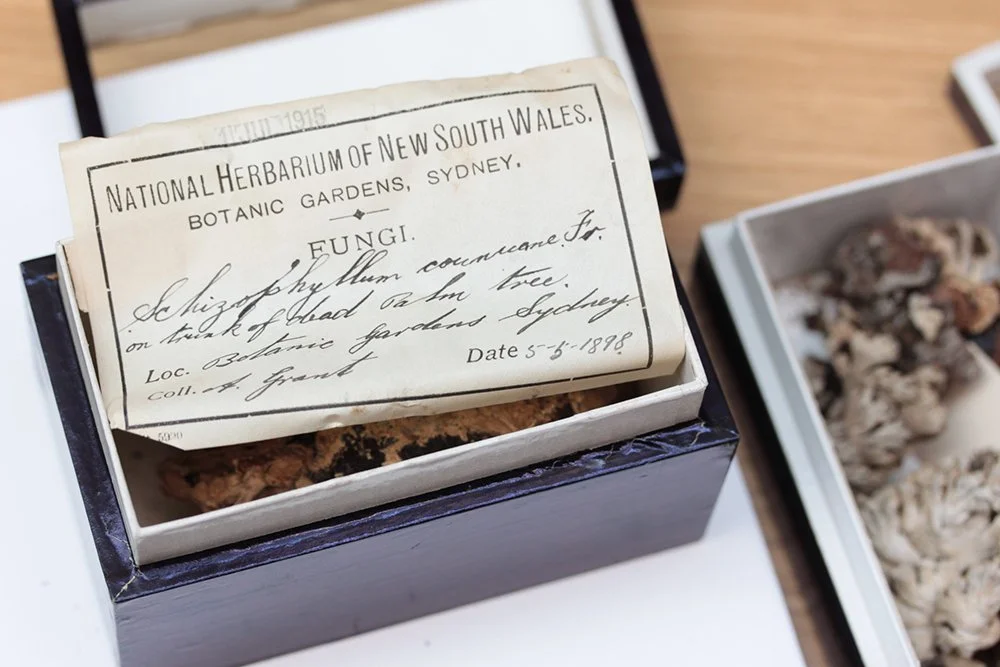 JUL 1915
NATIONAL HERBARIUM OF NEW SOUTH WALES.
BOTANIC GARDENS, SYDNEY.
FUNGI.
Schizophyllum commune. Fr.
on trunk of dead Palm tree.
Loc. Botanic Gardens Sydney
Coll. A. Grant Date 5-5-1898
5930